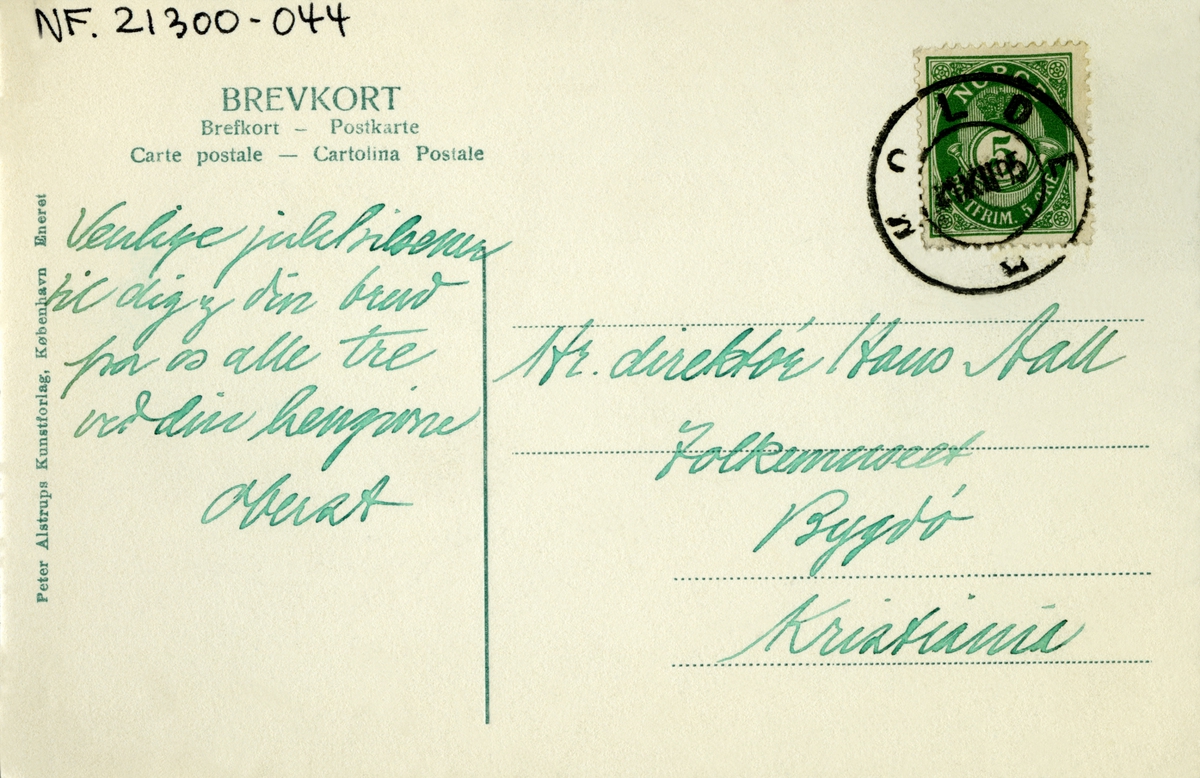 NF. 21300-044
BREVKORT
Brefkort – Postkarte
Carte postale — Cartolina Postale
Peter Alstrups Kunstforlag, København Eneret
NORGE
5
FRIM. 5 ØRE
MOLDE
Venlige julehilsener
til dig og din brud
fra os alle tre
ved din hengivne
Hr. direktör Hans Aall
Folkemuseet
Bygdö
Kristiania